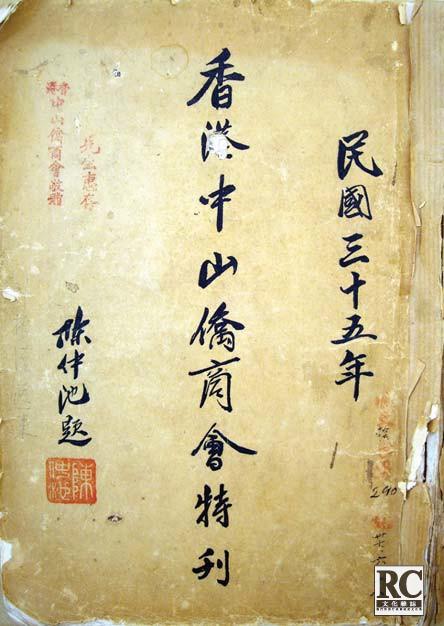 民國三十五年
香港中山僑商會特刊
陳仲池題
香港
中山僑商會敬贈
惠存
290
RC
文化雜誌